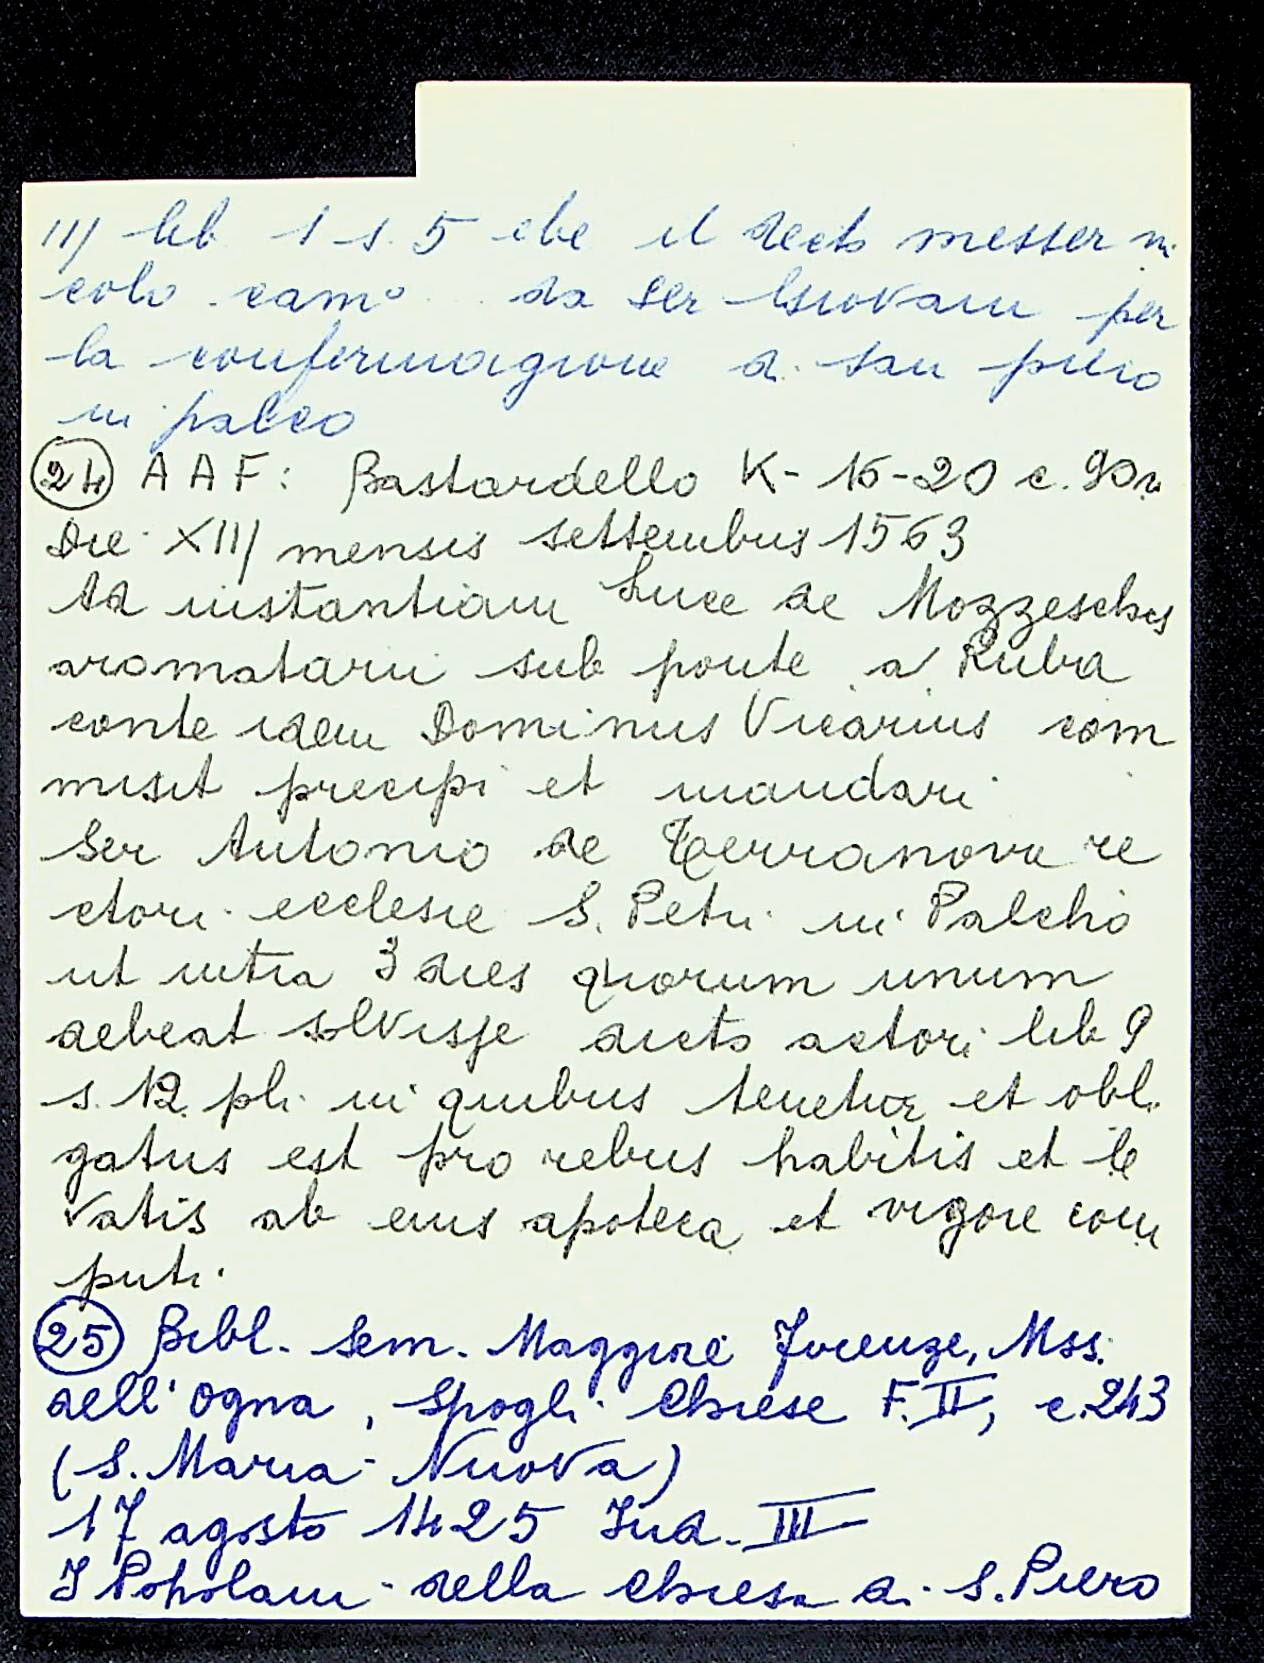 III lib 1 s. 5 ebe il decto messer ni
colo cam° da ser Giovani per
la confermagione di san piero
in palco
(24) A A F: Bastardello K-16-20 c. 90r.
Die XIII mensis settembris 1563
Ad instantiam Luce de Mozzeschis
aromatarii sub ponte a Ruba
conte idem Dominus Vicarius com
misit precipi et mandari
Ser Antonio de Terranova re
ctori ecclesie S. Petri in Palcho
ut intra 3 dies quorum unum
debeat solvisse dicto actori lib 9
s. 12 pli. in quibus tenetur et obli
gatus est pro rebus habitis et le
vatis ab eius apoteca et vigore com
puti.
(25) Bibl. Sem. Maggiore Firenze, Mss.
dell'Ogna, Spogli Chiese F. II, c. 243
(S. Maria Nuova)
17 agosto 1425 Ind. III
I Popolani della Chiesa di S. Piero